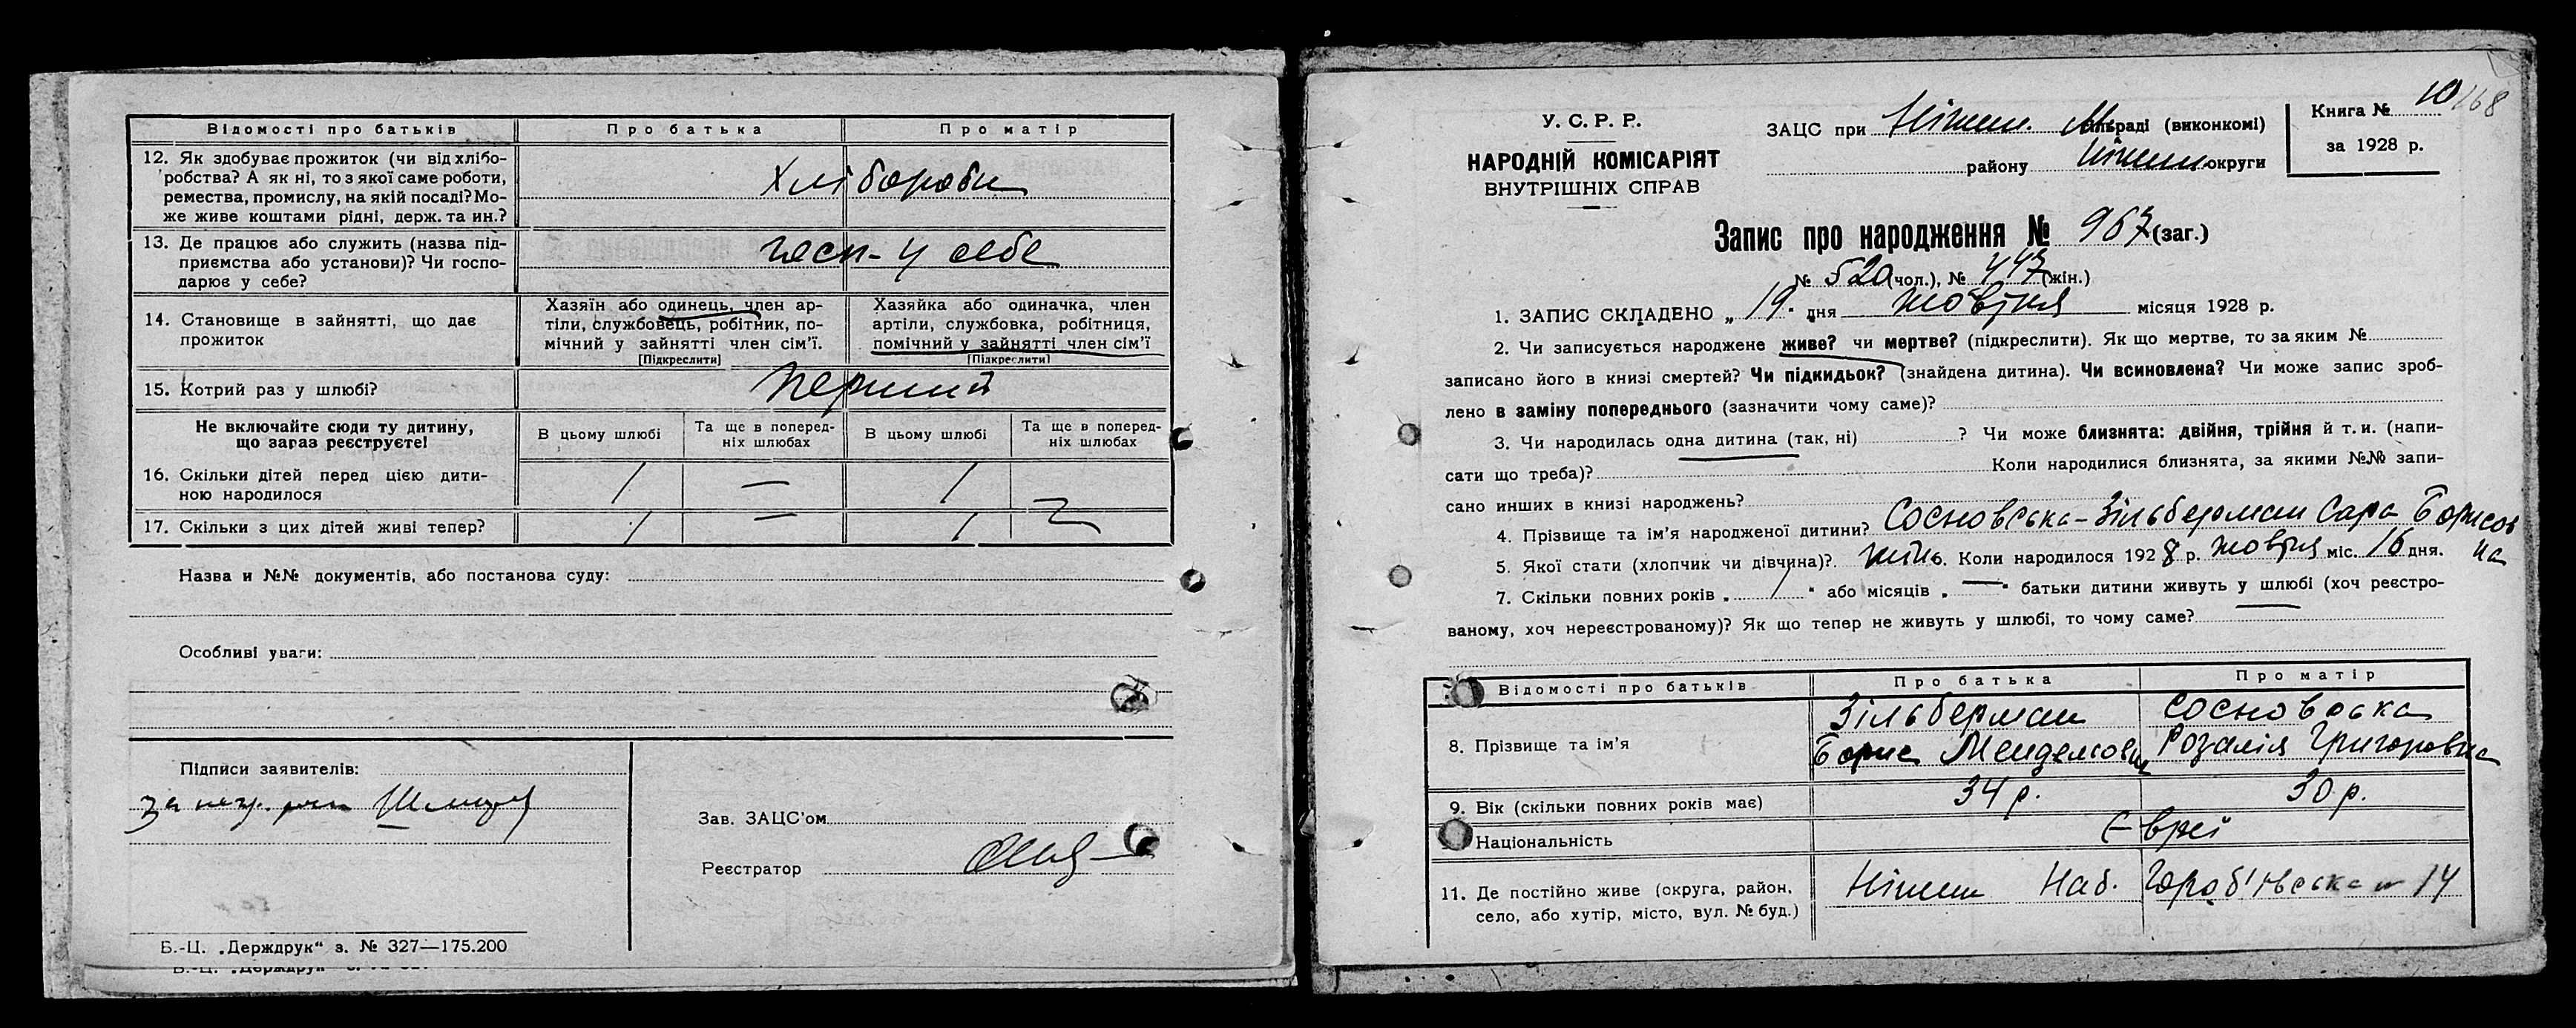 Відомості про батьків Про батька Про матір
12. Як здобуває прожиток (чи від хлібо-
робства? А як ні, то з якої саме роботи,
ремества, промислу, на якій посаді? Мо-
же живе коштами рідні, держ. та ин.?
Хлібороби
13. Де працює або служить (назва під-
приємства або установи)? Чи госпо-
дарює у себе?
госп- у себе
14. Становище в зайнятті, що дає
прожиток
Хазяїн або одинець, член ар-
тіли, службовець, робітник, по-
мічний у зайнятті член сім'ї.
[Підкреслити]
Хазяйка або одиначка, член
артіли, службовка, робітниця,
помічний у зайнятті член сім'ї
[Підкреслити]
15. Котрий раз у шлюбі? Перший
Не включайте сюди ту дитину,
що зараз реєструєте!
В цьому шлюбі
Та ще в поперед-
ніх шлюбах
В цьому шлюбі
Та ще в поперед-
ніх шлюбах
16. Скільки дітей перед цією дити-
ною народилося
1 — 1
17. Скільки з цих дітей живі тепер? 1 — 1
Назва и №№ документів, або постанова суду:
Особливі уваги:
Підписи заявителів:
Зав. ЗАЦС'ом
Реєстратор
Б.-Ц. „Держдрук“ з. № 327—175.200
У. С. Р. Р.
НАРОДНІЙ КОМІСАРІЯТ
ВНУТРІШНІХ СПРАВ
ЗАЦС при Ніжин. М. раді (виконкомі)
району Ніжин округи
Книга № 10
168
за 1928 р.
Запис про народження № 967 (заг.)
№ 520 (чол.), № 447 (жін.)
1. ЗАПИС СКЛАДЕНО „ 19. дня жовтня місяця 1928 р.
2. Чи записується народжене живе? чи мертве? (підкреслити). Як що мертве, то за яким №
записано його в книзі смертей? Чи підкидьок? (знайдена дитина). Чи всиновлена? Чи може запис зроб-
лено в заміну попереднього (зазначити чому саме)?
3. Чи народилась одна дитина (так, ні) ? Чи може близнята: двійня, трійня й т. и. (напи-
сати що треба)? Коли народилися близнята, за якими №№ запи-
сано инших в книзі народжень?
4. Прізвище та ім'я народженої дитини? Сосновська-Зільберман Сара Борисов
на
5. Якої стати (хлопчик чи дівчина)? жін. 6. Коли народилося 1928 р. жовтня міс. 16 дня.
7. Скільки повних років „ 1 “ або місяців „ — “ батьки дитини живуть у шлюбі (хоч реєстро-
ваному, хоч нереєстрованому)? Як що тепер не живуть у шлюбі, то чому саме?
Відомості про батьків Про батька Про матір
8. Прізвище та ім'я
Зільберман
Борис Менделович
Сосновська
Розалія Григоровна
9. Вік (скільки повних років має) 34 р. 30 р.
Національність Євреї
11. Де постійно живе (округа, район,
село, або хутір, місто, вул. № буд.)
Ніжин Наб. 14